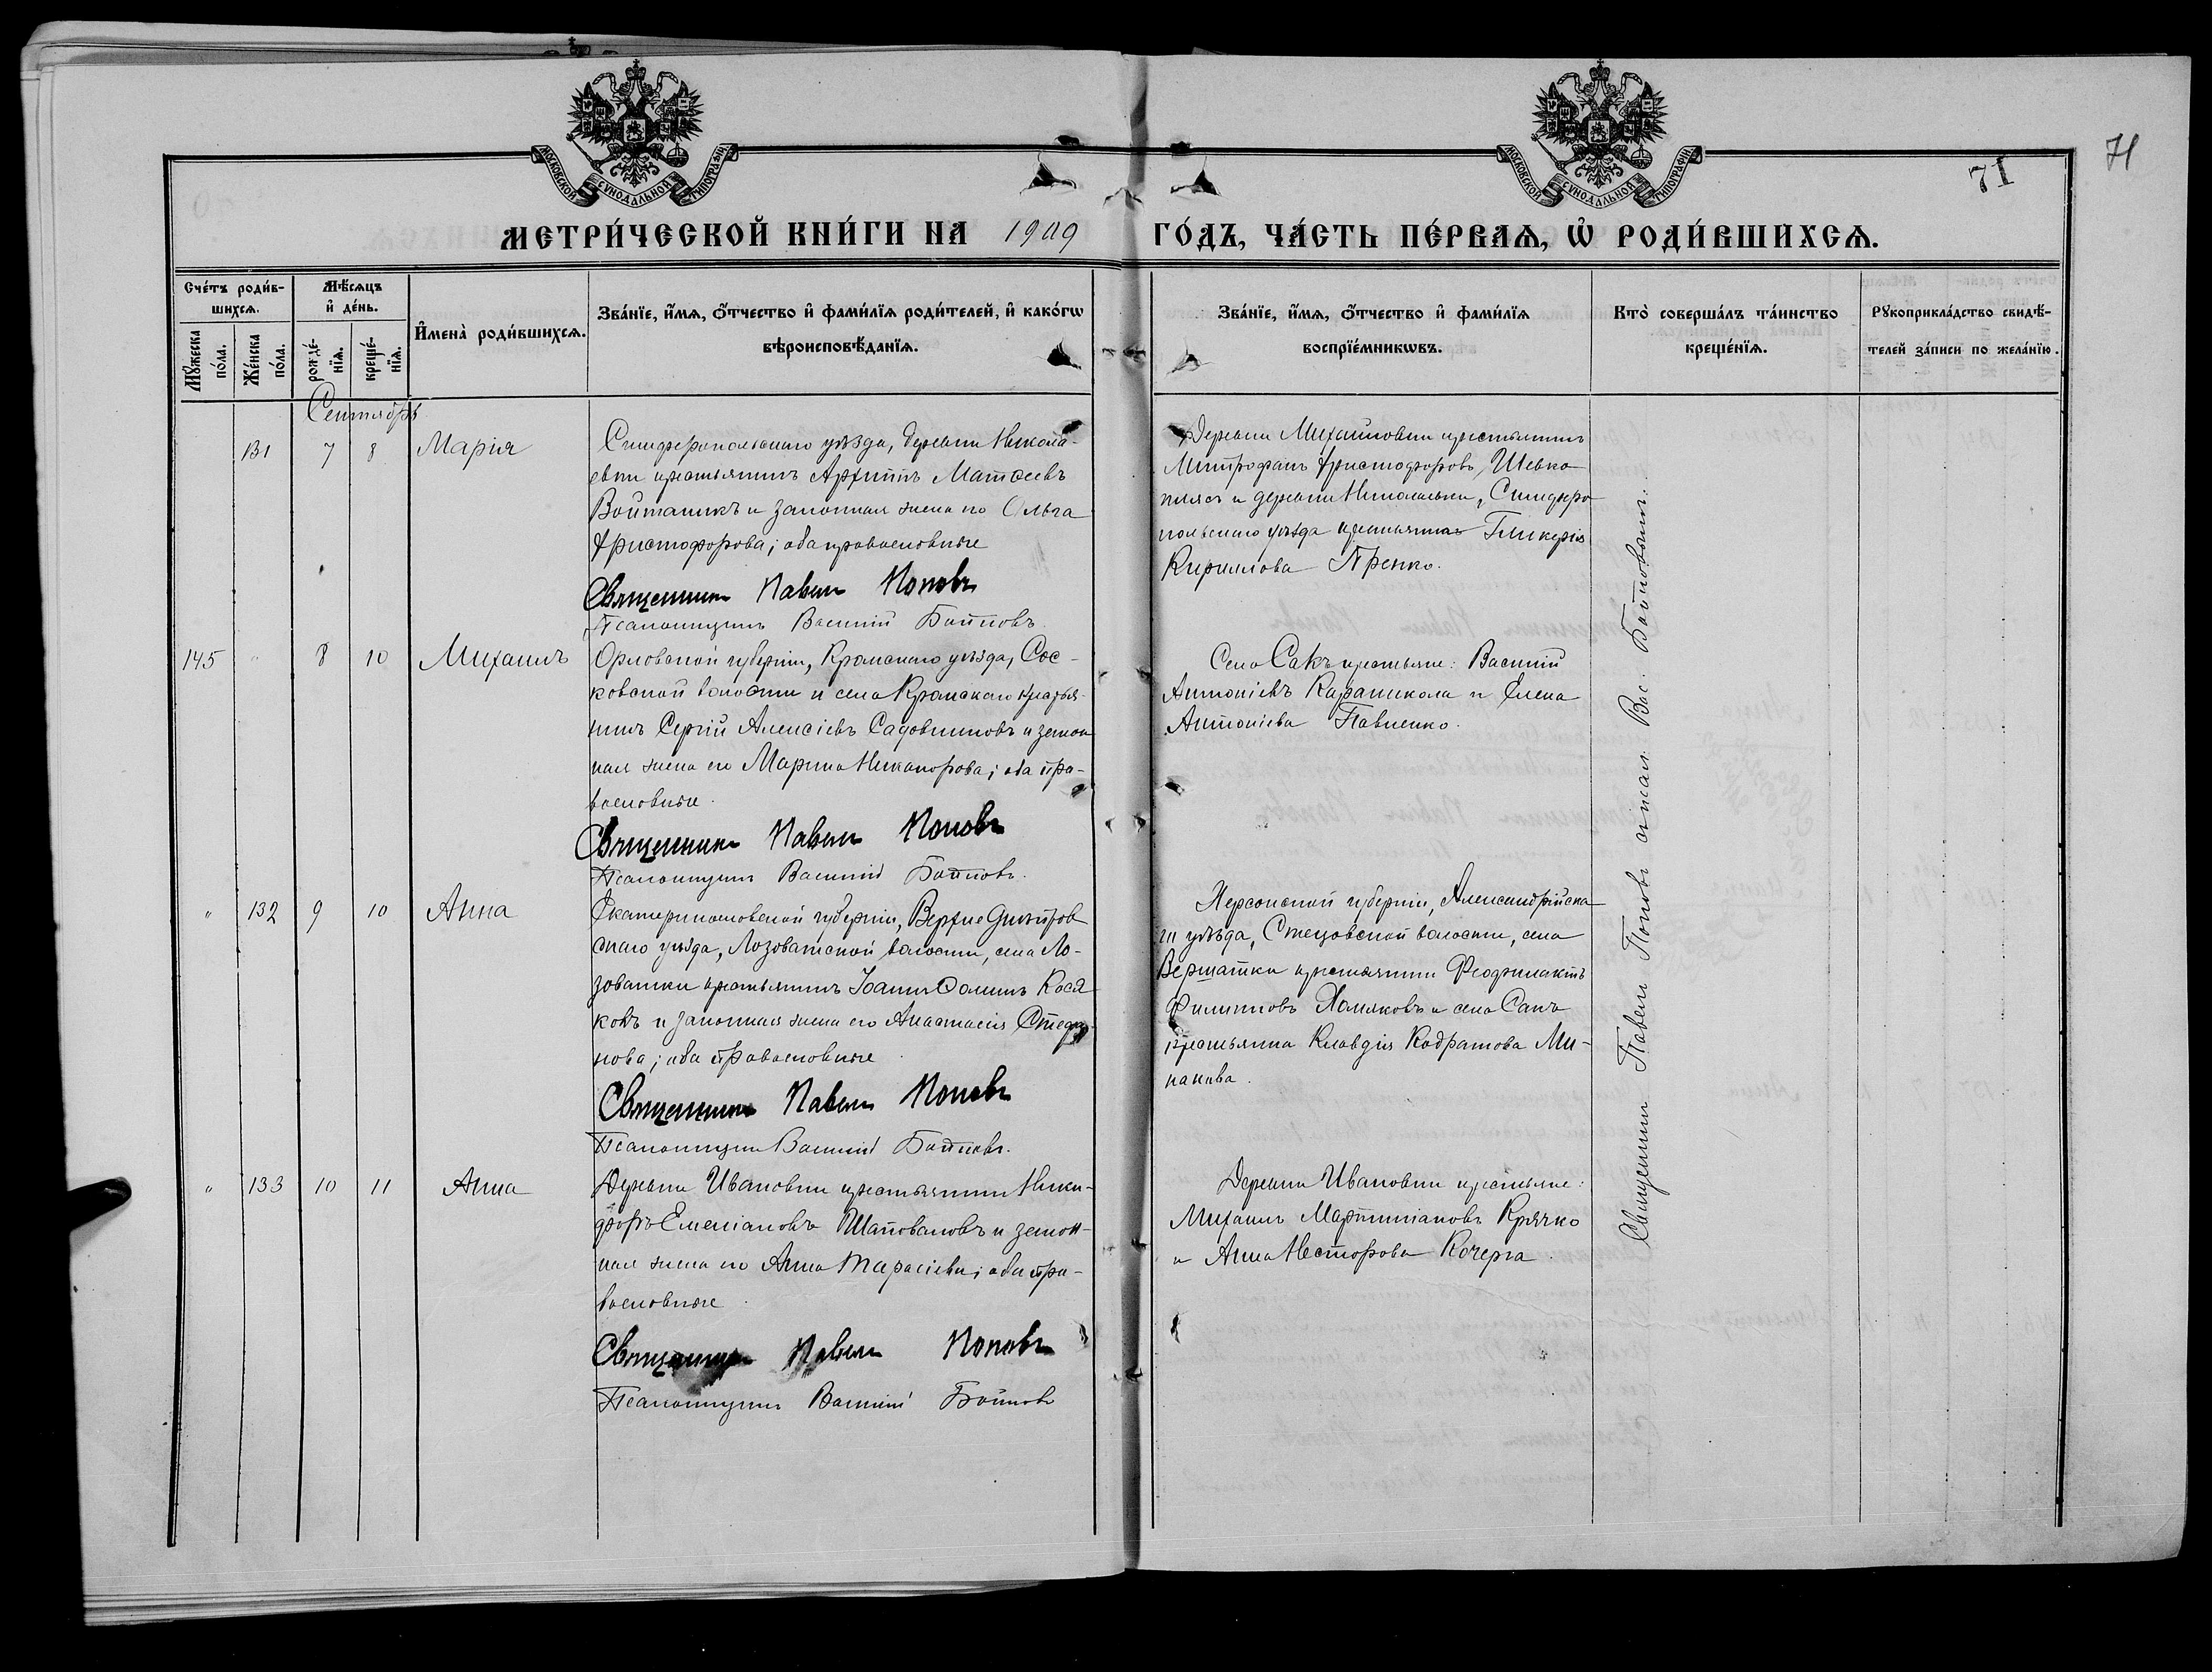 МОСКОВСКОЙ СѴНОДАЛЬНОЙ ТИПОГРАФІИ
МОСКОВСКОЙ СѴНОДАЛЬНОЙ ТИПОГРАФІИ
71
71
МЕТРИ́ЧЕСКОЙ КНИ́ГИ НА 1909 ГО́ДЪ, ЧА́СТЬ ПЕ́РВАѦ, Ѡ РОДИ́ВШИХСѦ.
Счéтъ роди́в-
шихсѧ.
Мꙋ́жеска по́ла.
Же́нска по́ла.
Мѣ́сѧцъ
и҆ де́нь.
рожде́-
нїѧ.
креще́-
нїѧ.
И҆мена̀ роди́вшихсѧ.
Зва́нїе, и҆́мѧ, ѻ҆́тчество и҆ фами́лїѧ роди́телей, и҆ како́гѡ
вѣроисповѣ́данїѧ.
Зва́нїе, и҆́мѧ, ѻ҆́тчество и҆ фами́лїѧ
воспрїе́мникѡвъ.
Кто̀ соверша́лъ та́инство
креще́нїѧ.
Рꙋкоприкла́дство свидѣ́-
телей за́писи по жела́нїю.
Сентябрь
131 7 8 Марія
Симферопольскаго уѣзда, деревни Никола-
евки крестьянинъ Архиппъ Матѳеевъ
Войтаникъ и законная жена его Ольга
Христофорова; оба православные
Священникъ Павелъ Поповъ
Псаломщикъ Василій
Деревни Михайловки крестьянинъ
Митрофанъ Христофоровъ Шевко-
плясъ и деревни Николаевки, Симферо-
польскаго уѣзда крестьянка Гликерія
Кириллова Пренко.
145 " 8 10 Михаилъ
Орловской губерніи, Кромскаго уѣзда, Сос-
ковской волости и села Кромскаго крестья-
нинъ Сергій Алексіевъ Садовниковъ и закон-
ная жена его Марина Никанорова; оба пра-
вославные.
Священникъ Павелъ Поповъ
Псаломщикъ Василій
Село Сакъ крестьяне: Василій
Антоніевъ Караникола и Елена
Антоніева Павленко.
" 132 9 10 Анна
Екатеринославской губерніи, Верхнеднѣпров
скаго уѣзда, Лозоватской волости, села Ло-
зоватки крестьянинъ Іоаннъ Ѳоминъ Кося
ковъ и законная жена его Анастасія Стефа-
нова; оба православные.
Священникъ Павелъ Поповъ
Псаломщикъ Василій
Херсонской губерніи, Александрійска-
го уѣзда, Стецовской волости, села
Вершатки крестьянинъ Феофилактъ
Филипповъ Хомяковъ и села Сакъ
крестьянка Клавдія Кодратова Ми-
накова.
" 133 10 11 Анна
Деревни Ивановки крестьянинъ Ники-
форъ Емеліановъ Шаповаловъ и закон-
ная жена его Анна Тарасіева; оба пра-
вославные.
Священникъ Павелъ Поповъ
Псаломщикъ Василій
Деревни Ивановки крестьяне:
Михаилъ Мартиніановъ Крячко
и Анна Несторова Кочерга.
Священникъ Павелъ Поповъ Вас.